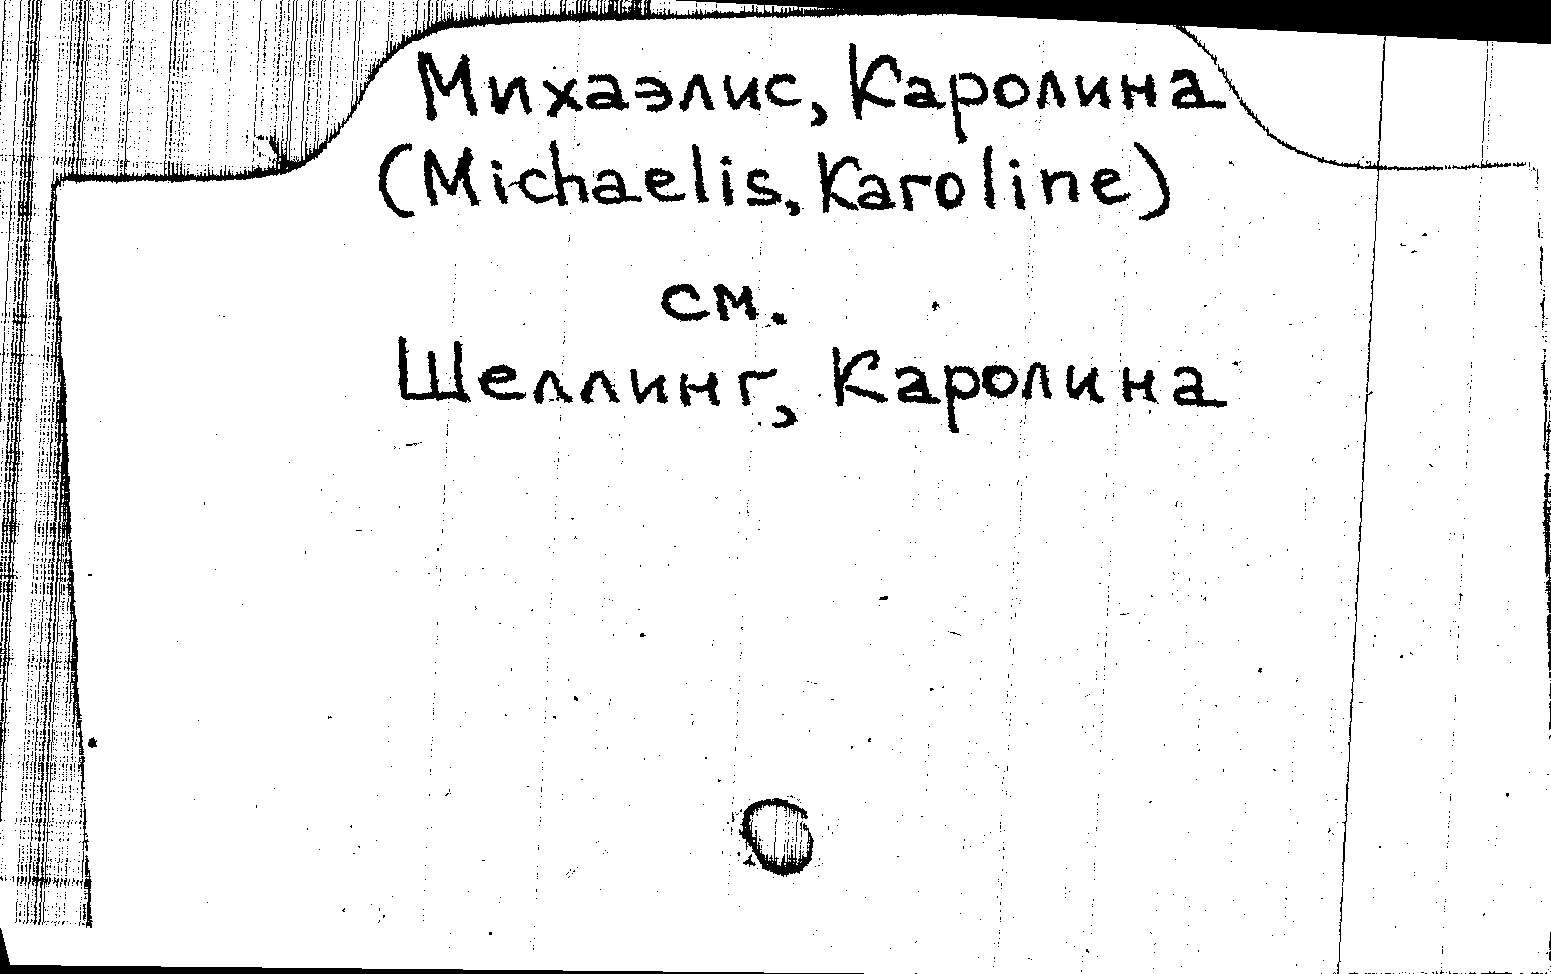 Михаэлис, Каролина
(Michaelis, Karoline)
см.
Шеллинг, Каролина